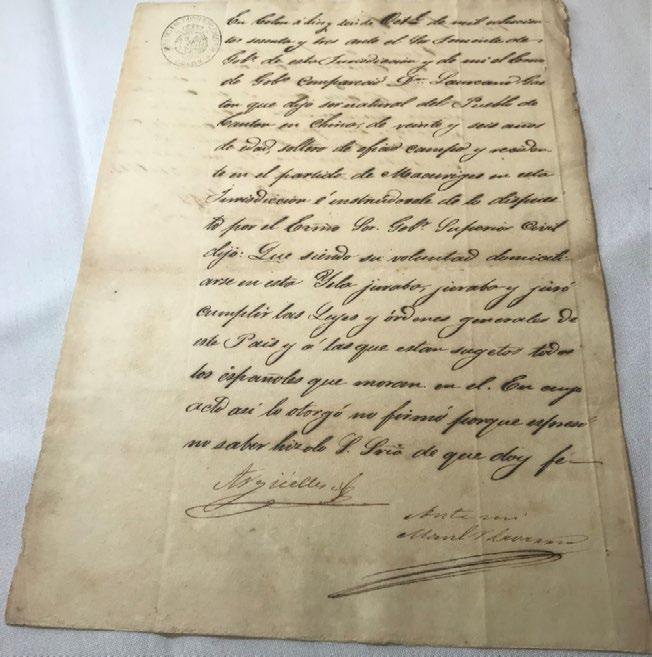 En Colon á
de mil ochocien
tos sesenta y tres ante el Sor Teniente de
Gobr de esta Jurisdiccion y de mi el
de Gobo Compareció Dn Laureano Gas
ton que dijo ser natural del Pueblo de
Canton en China, de veinte y seis años
de edad, soltero de campo y residen
te en el partido de Macuriges en esta
Jurisdiccion é instruidosele de lo dispues
to por el Exmo Sor Gobr Superior Civil
dijo: Que siendo su voluntad domicili
arse en esta Ysla juraba, juraba y juró
cumplir las Leyes y órdenes generales de
este Pais y á las que estan sugetos todos
los españoles que moran en el. En cuyo
acto asi lo otorgó no firmó porque espresó
no saber hizolo S. Sría de que doy fé
Argüelles
Ante mi
Manl